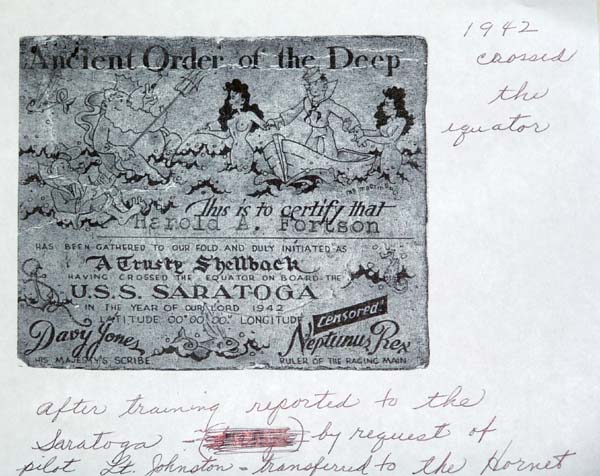 1942
crossed
the
equator
Ancient Order of the Deep
This is to certify that
Harold A. Fortson
HAS BEEN GATHERED TO OUR FOLD AND DULY INITIATED AS
A Trusty Shellback
HAVING CROSSED THE EQUATOR ON BOARD THE
U.S.S. SARATOGA
IN THE YEAR OF OUR LORD 1942
LATITUDE 00° 00' 00" LONGITUDE Censored!
Davy Jones Neptunus Rex
HIS MAJESTY'S SCRIBE RULER OF THE RAGING MAIN
After training reported to the
Saratoga - by request of
pilot Lt. Johnston - transferred to the Hornet